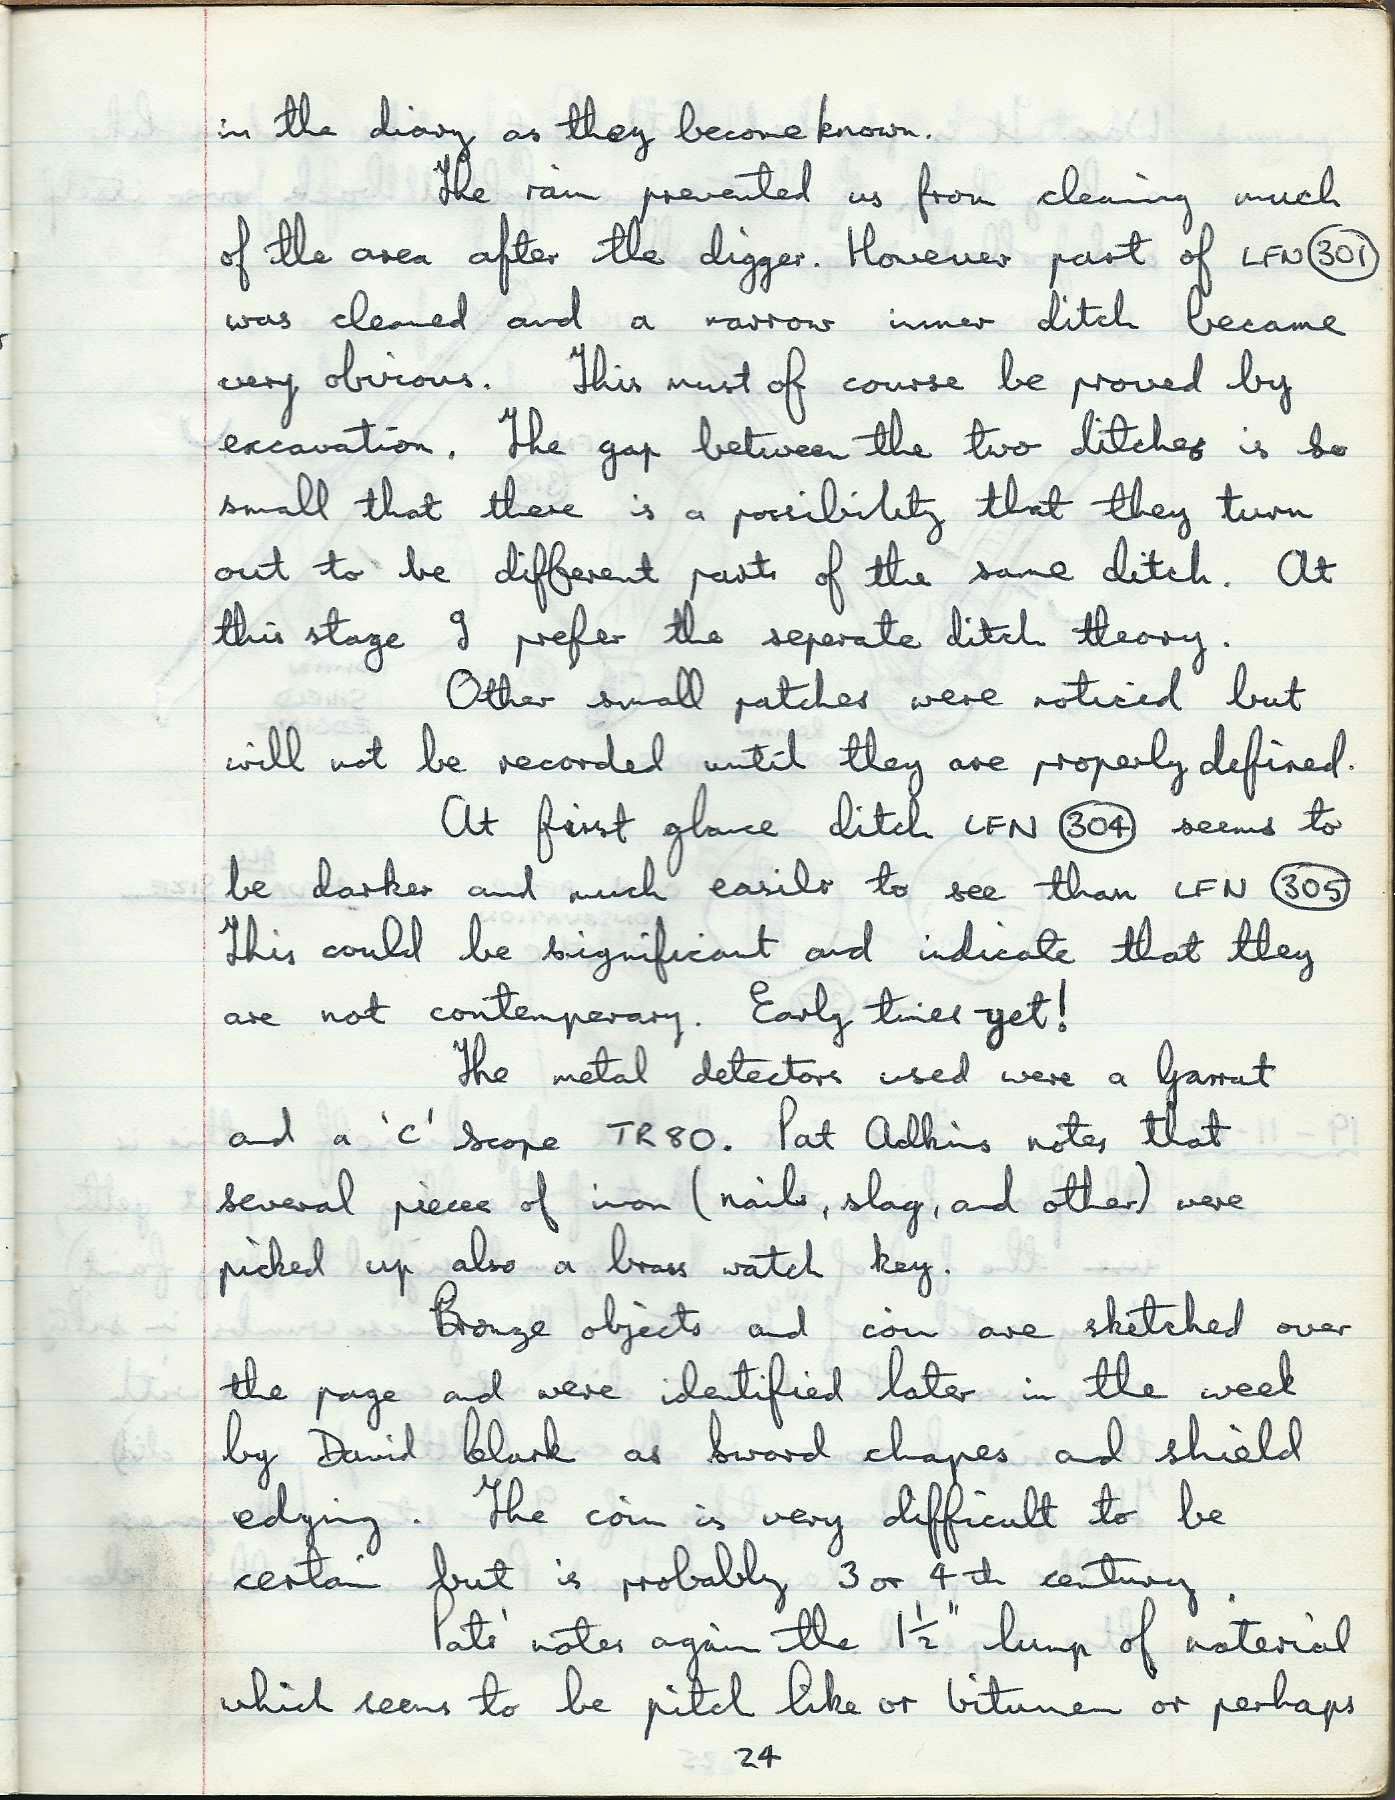 in the diary as they become known.
The rain prevented us from cleaning much
of the area after the digger. However part of LFN 301
was cleaned and a narrow inner ditch became
very obvious. This must of course be proved by
excavation. The gap between the two ditches is so
small that there is a possibility that they turn
out to be different parts of the same ditch. At
this stage I prefer the seperate ditch theory.
Other small patches were noticed but
will not be recorded until they are properly defined.
At first glance ditch LFN 304 seems to
be darker and much easier to see than LFN 305
This could be significant and indicate that they
are not contemporary. Early times yet!
The metal detectors used were a Garrat
and a 'C' Scope TR80. Pat Adkins notes that
several pieces of iron (nails, slag, and other) were
picked up also a brass watch key.
Bronze objects and coin are sketched over
the page and were identified later in the week
by David Clark as sword chapes and shield
edging. The coin is very difficult to be
certain but is probably 3 or 4th century.
Pats' notes again the 1½" lump of material
which seems to be pitch like or bitumen or perhaps
24